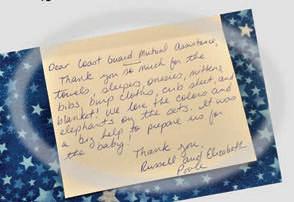 Dear Coast Guard Mutual Assistance,
Thank you so much for the
towels, sleeper, onesies, mittens,
bibs, burp cloths, crib sheet, and
blanket! We love the colors and
elephants on the sets. It was
a big help to prepare us for
the baby.
Thank you,
Russell and Elizabeth